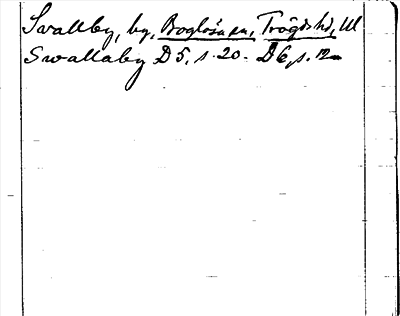 Svallby, by, Boglösa sn, Trögds hd, Ul
Swallaby D5, s. 20. D6, s. 12